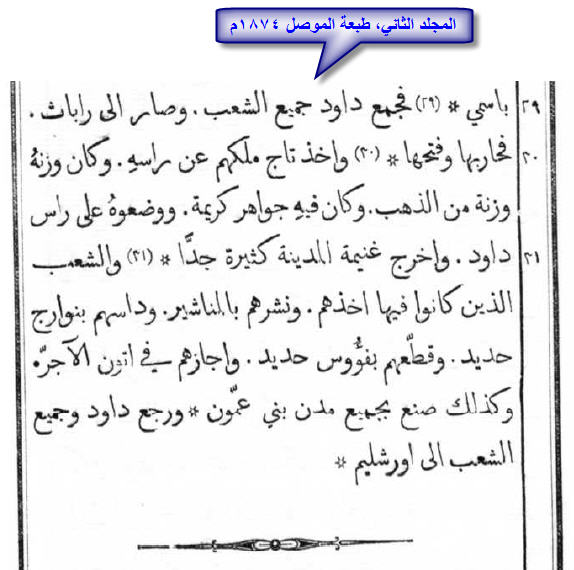 المجلد الثاني، طبعة الموصل ١٨٧٤م
٢٩ باسمي * (٢٩) فجمع داود جميع الشعب . وصار الى راباث .
٣٠ فحاربها وفتحها * (٣٠) واخذ تاج ملكهم عن راسهِ . وكان وزنهُ
وزنة من الذهب . وكان فيهِ جواهر كريمة . ووضعوهُ على راس
٣١ داود . واخرج غنيمة المدينة كثيرة جدًّا * (٣١) والشعب
الذين كانوا فيها اخذهم . ونشرهم بالمناشير . وداسهم بنوارج
حديد . وقطّعهم بفؤُوس حديد . واجازهم في اتون الآجرّ .
وكذلك صنع بجميع مدن بني عمّون * ورجع داود وجميع
الشعب الى اورشليم *